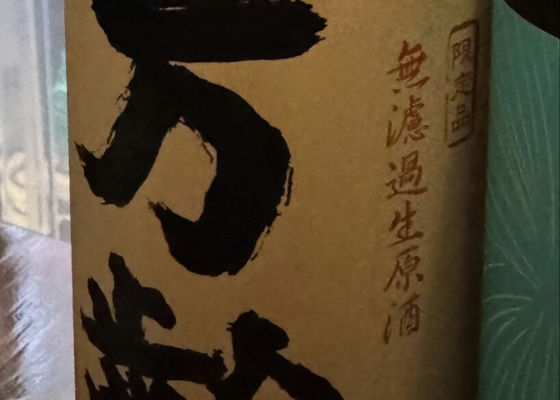 限定品
無濾過生原酒
万齢